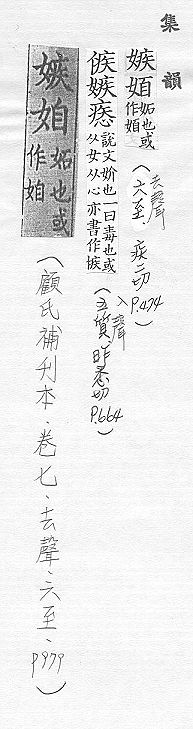 集韻
嫉㛍妬也或作㛍
(去聲
六至、疾二切
P.474)
㑵嫉㥍說文妎也一曰毒也或从女从心亦書作㥍
(入聲
五質、昨悉切
P.664)
嫉㛍妬也或作㛍
(顧氏補刊本、卷七、去聲、六至、P979)